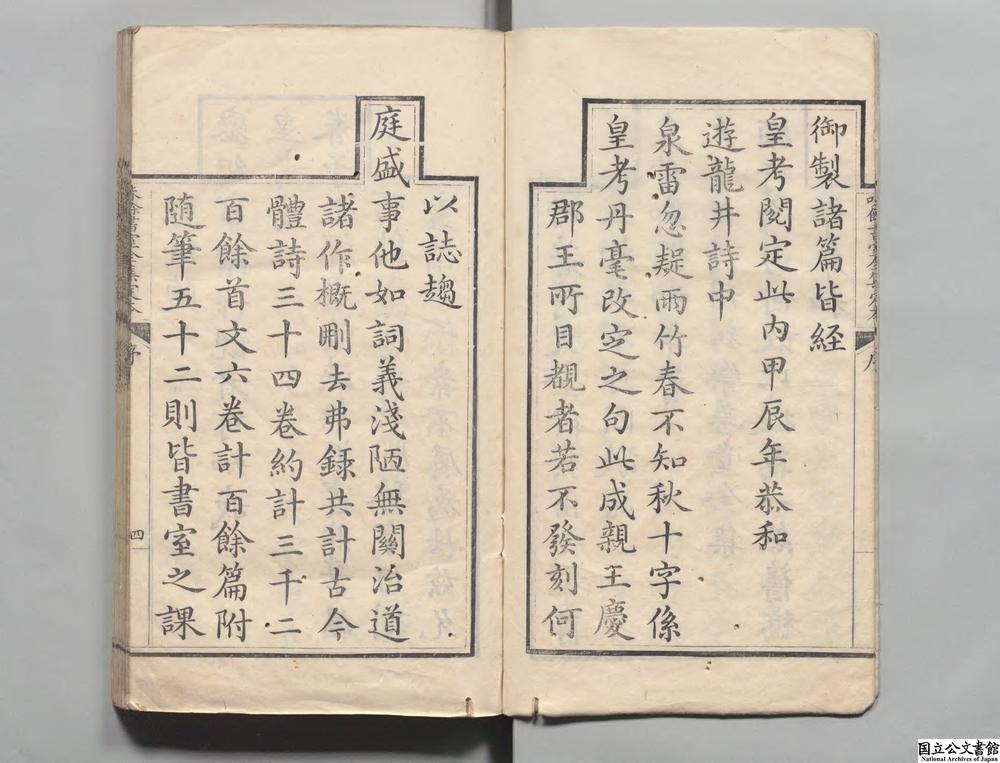 御製諸篇皆經
皇考閱定此内甲辰年恭和
遊龍井詩中
泉雷忽疑雨竹春不知秋十字係
皇考丹毫改定之句此成親王慶
郡王所目覩者若不發刻何
以誌趨
庭盛事他如詞義淺陋無關治道
諸作概刪去弗録共計古今
體詩三十四卷約計三千二
百餘首文六卷計百餘篇附
随筆五十二則皆書室之課
序
四
国立公文書館
National Archives of Japan